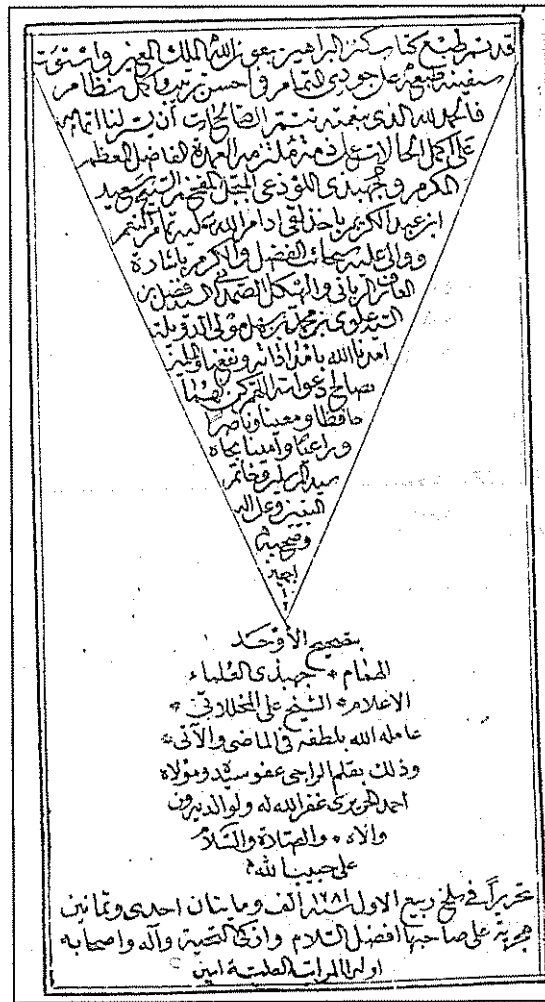 قد تم طبع كتاب كنز البراهين بعون الله الملك المعين واستوت
سفينة طبعه على جودي التمام في احسن زي واكمل نظام
فالحمد لله الذي بنعمته تتم الصالحات أن يسر لنا اتمامه
على اكمل الحالات على ذمة ملتزمه العمدة الفاضل العظم
الكرم وجهبذى اللوذعى المبجل المفخم الشيخ سعيد
ابن عبد الكريم باخذلقى ادام الله عليه تمام النعم
ووالى عليه سحائب الفضل والكرم باشارة
العارف الربانى والهيكل الصمدانى السيد فضل بن
السيد علوى بن محمد بن سهل مولى الدويلة
امدنا الله بامداداته ونفعنا والمسلمين
بصالح دعواته اللهم كن لهما
حافظا ومعينا وناصرا
وراعيا وآمينا بجاه
سيد المرسلين وخاتم
النبيين وعلى اله
وصحبه
اجمعين
بتصحيح الأوحد
الهمام * جهبذى العلماء
الاعلام * الشيخ على المخللاتى *
عامله الله بلطفه فى الماضى والآتى *
وذلك بقلم الراجى عفو سيده ومولاه
احمد الحريرى غفر الله له ولوالديه ومن
والاه * والصلاة والسلام
على حبيب الله
تحريراً فى سلخ ربيع الاول سنة ١٢٨١ الف ومايتان احدى وثمانين
هجرية على صاحبها افضل السلام وازكى التحية وآله واصحابه
اولى المراتب العلية امين